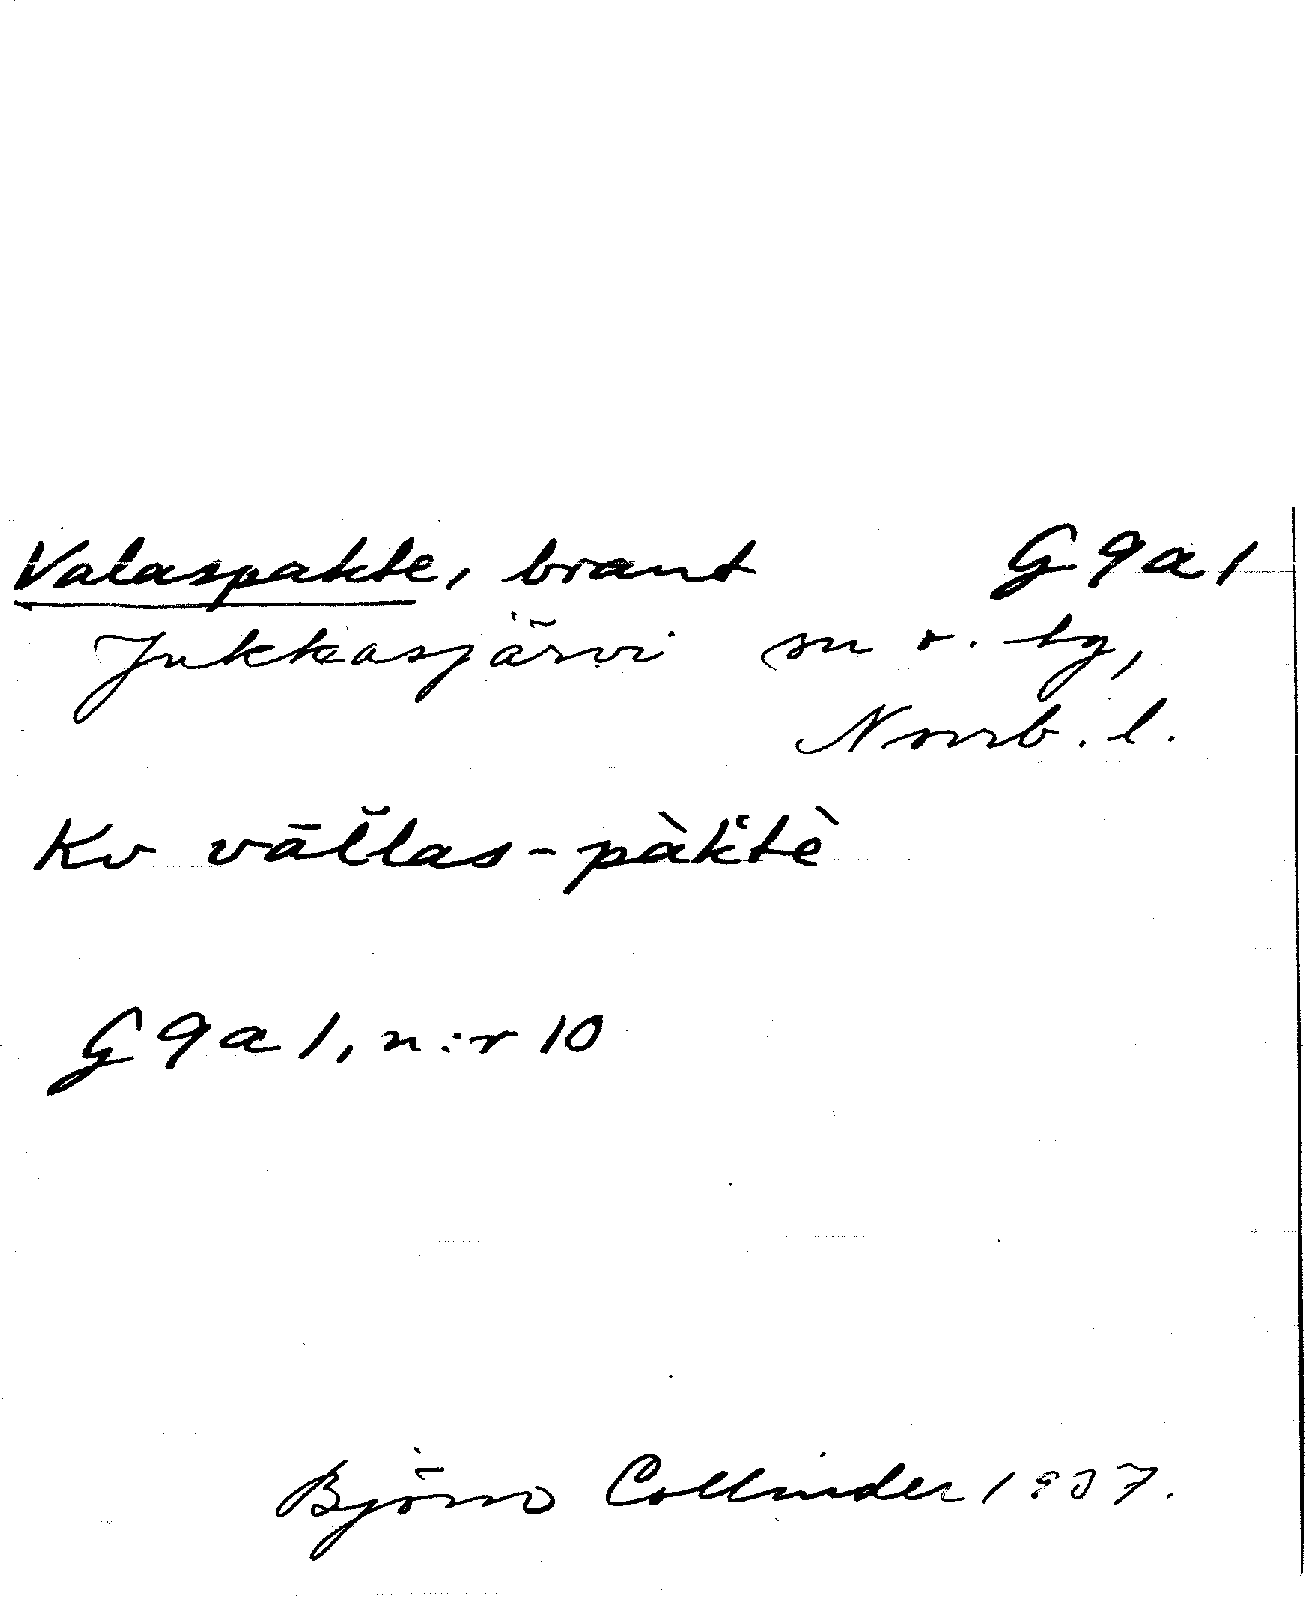 Valaspakte, brant G 9 a 1
Jukkasjärvi sn o. tg,
Norrb. l.
Kv vāl̆las-pàk̔tè
G 9 a 1, n:r 10
Björn Collinder 1937.